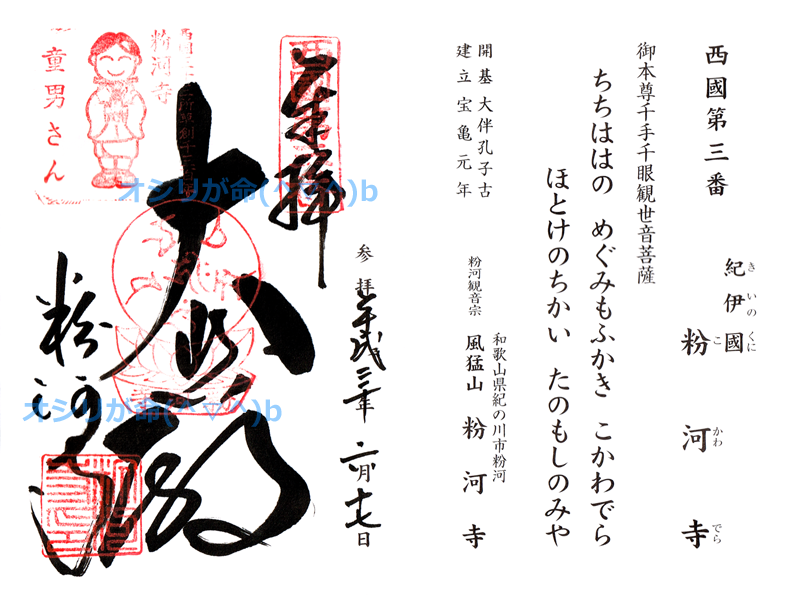 西國第三番
紀伊國
きいのくに
粉河寺
こかわでら
御本尊千手千眼観世音菩薩
ちちははの めぐみもふかき こかわでら
ほとけのちかい たのもしのみや
開基大伴孔子古
建立宝亀元年
和歌山県紀の川市粉河
粉河観音宗
風猛山 粉河寺
奉拝
参拝 令和三年 二月十七日
大悲殿
粉河寺
粉河寺
童男さん
オシリが命(^▽^)b
オシリが命(^▽^)b